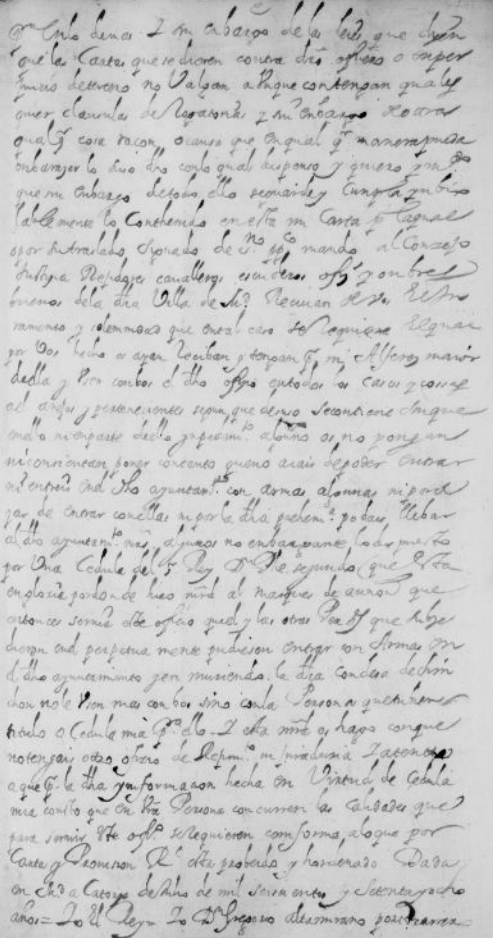 En lo demas Y sin enbargo de las leies que diçen
que las Cartas que se dieren contra dro fuero o
juiçio de terçero no Valgan aUnque contengan quales
quier clausulas de Rogatorias y sin enbargo de otra
qualqr cosa raçon o causa que en qual qr manera pueda
enbaraçar lo suso dho con lo qual dispenso y quiero y
que sin enbargo de todo ello se guarde y Cumpla ynbio
lablemente lo Conthenido en esta mi Carta pr la qual
o por su traslado signado de sno pco mando al Conzejo
Justiçia Rejidores cavalleros escuderos ofs y onbres
buenos de la dha Villa de Md Reciuan de Vos el Jura
ramento y solemnidad que en tal caso se Requiere el qual
por Vos hecho os ayan Reciban y tengan pr mi Alferez maior
della y Vsen con bos el dho ofiçio en todos los casos y cosas
a el anejos y pertenecientes segun que de suso se contiene en que
en ello ni en parte dello ynpedimto alguno os no pongan
ni consientan poner con tanto que no aiais de poder entrar
ni entreis en el dho ayuntamto con armas algunas ni por
de entrar con ellas ni por la dha prehemia podais llebar
al dho ayuntamto mas algunas no enbargante lo dispuesto
por Vna Cedula del sr Rey Dn Phe segundo que esta
en gloria por donde hiço mrd al marques de auñon que
entonces seruia este ofiçio que el y las otras Personas que
en el perpetua mente pudiesen entrar con Armas en
el dho ayuntamiento y en muriendo la dha condesa de chin
chon no le Vsen mas con bos sino con la Persona que tubiere
titulo o Cedula mia pa ello Y esta mrd os hago con que
no tengais otro ofiçio de Rejimto ni juraderia Y atento
a que pr la dha ynformaçion hecha en Virtud de Cedula
mia consto que en Vra Persona concurren las Calidades que
para seruir este ofiçio se requieren conforme a lo que por
Carta y Prouision Rl esta probeido y hordenado Dada
en Md a Catorçe de de mil seiscientos y setenta y ocho
años = Yo El Rey = Yo Dn Gregorio altamirano portocarrero